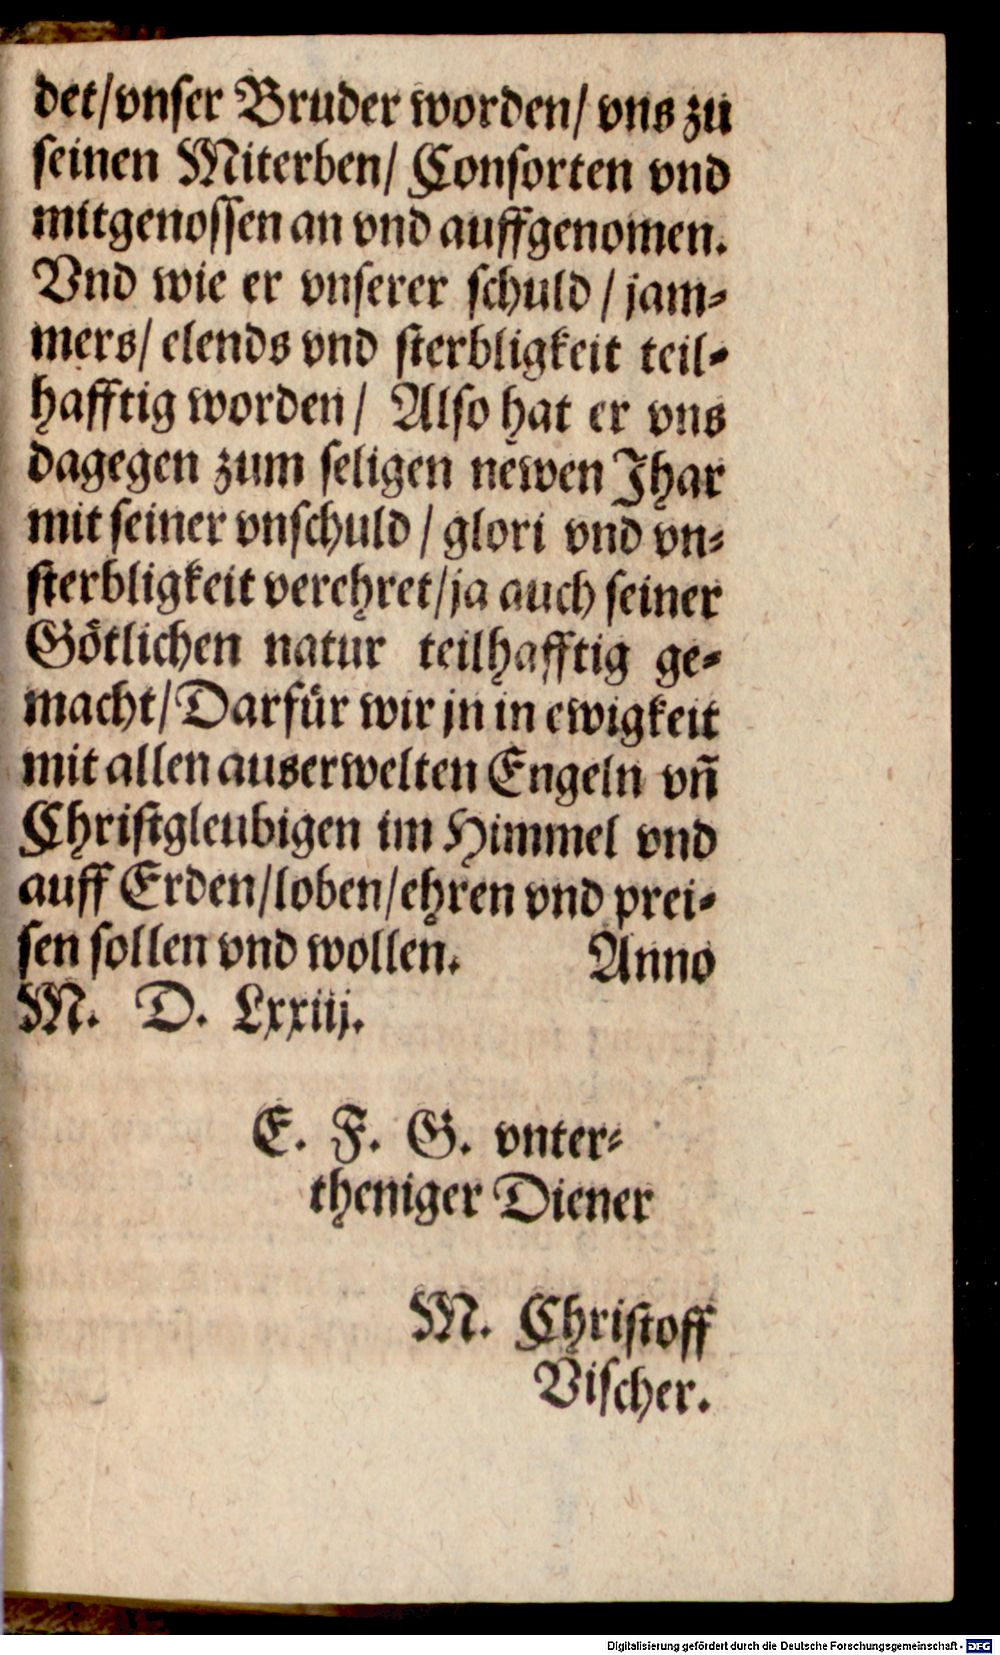 det/vnſer Bruder worden/ vns zu
ſeinen Miterben/ Conſorten vnd
mitgenoſſen an vnd auffgenomen.
Vnd wie er vnſerer ſchuld / jam⸗
mers/ elends vnd ſterbligkeit teil⸗
hafftig worden/ Alſo hat er vns
dagegen zum ſeligen newen Jhar
mit ſeiner vnſchuld / glori vnd vn⸗
ſterbligkeit verehret/ja auch ſeiner
Goͤtlichen natur teilhafftig ge⸗
macht/Darfuͤr wir jn in ewigkeit
mit allen auserwelten Engeln vn̄
Chriſtgleubigen im Himmel vnd
auff Erden/loben/ehren vnd prei⸗
ſen ſollen vnd wollen. Anno
M. D. Lxxiij.
E. F. G. vnter⸗
theniger Diener
M. Chriſtoff
Viſcher.
Digitalisierung gefördert durch die Deutsche Forschungsgemeinschaft - DFG